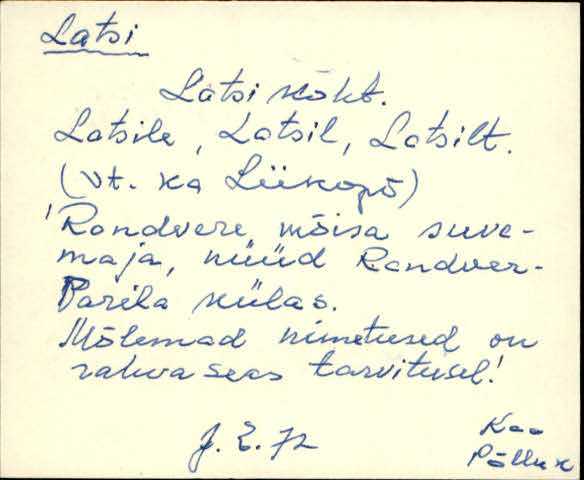 Latsi
Latsi kõht.
Latsile, Latsil, Latsilt.
(vt. ka Liikopõ)
'Randvere mõisa suve-
maja, nüüd Randver-
Parila külas.
Mõlemad nimetused on
rahva seas tarvitusel!
J. E. 72
Kaa
Põllu k